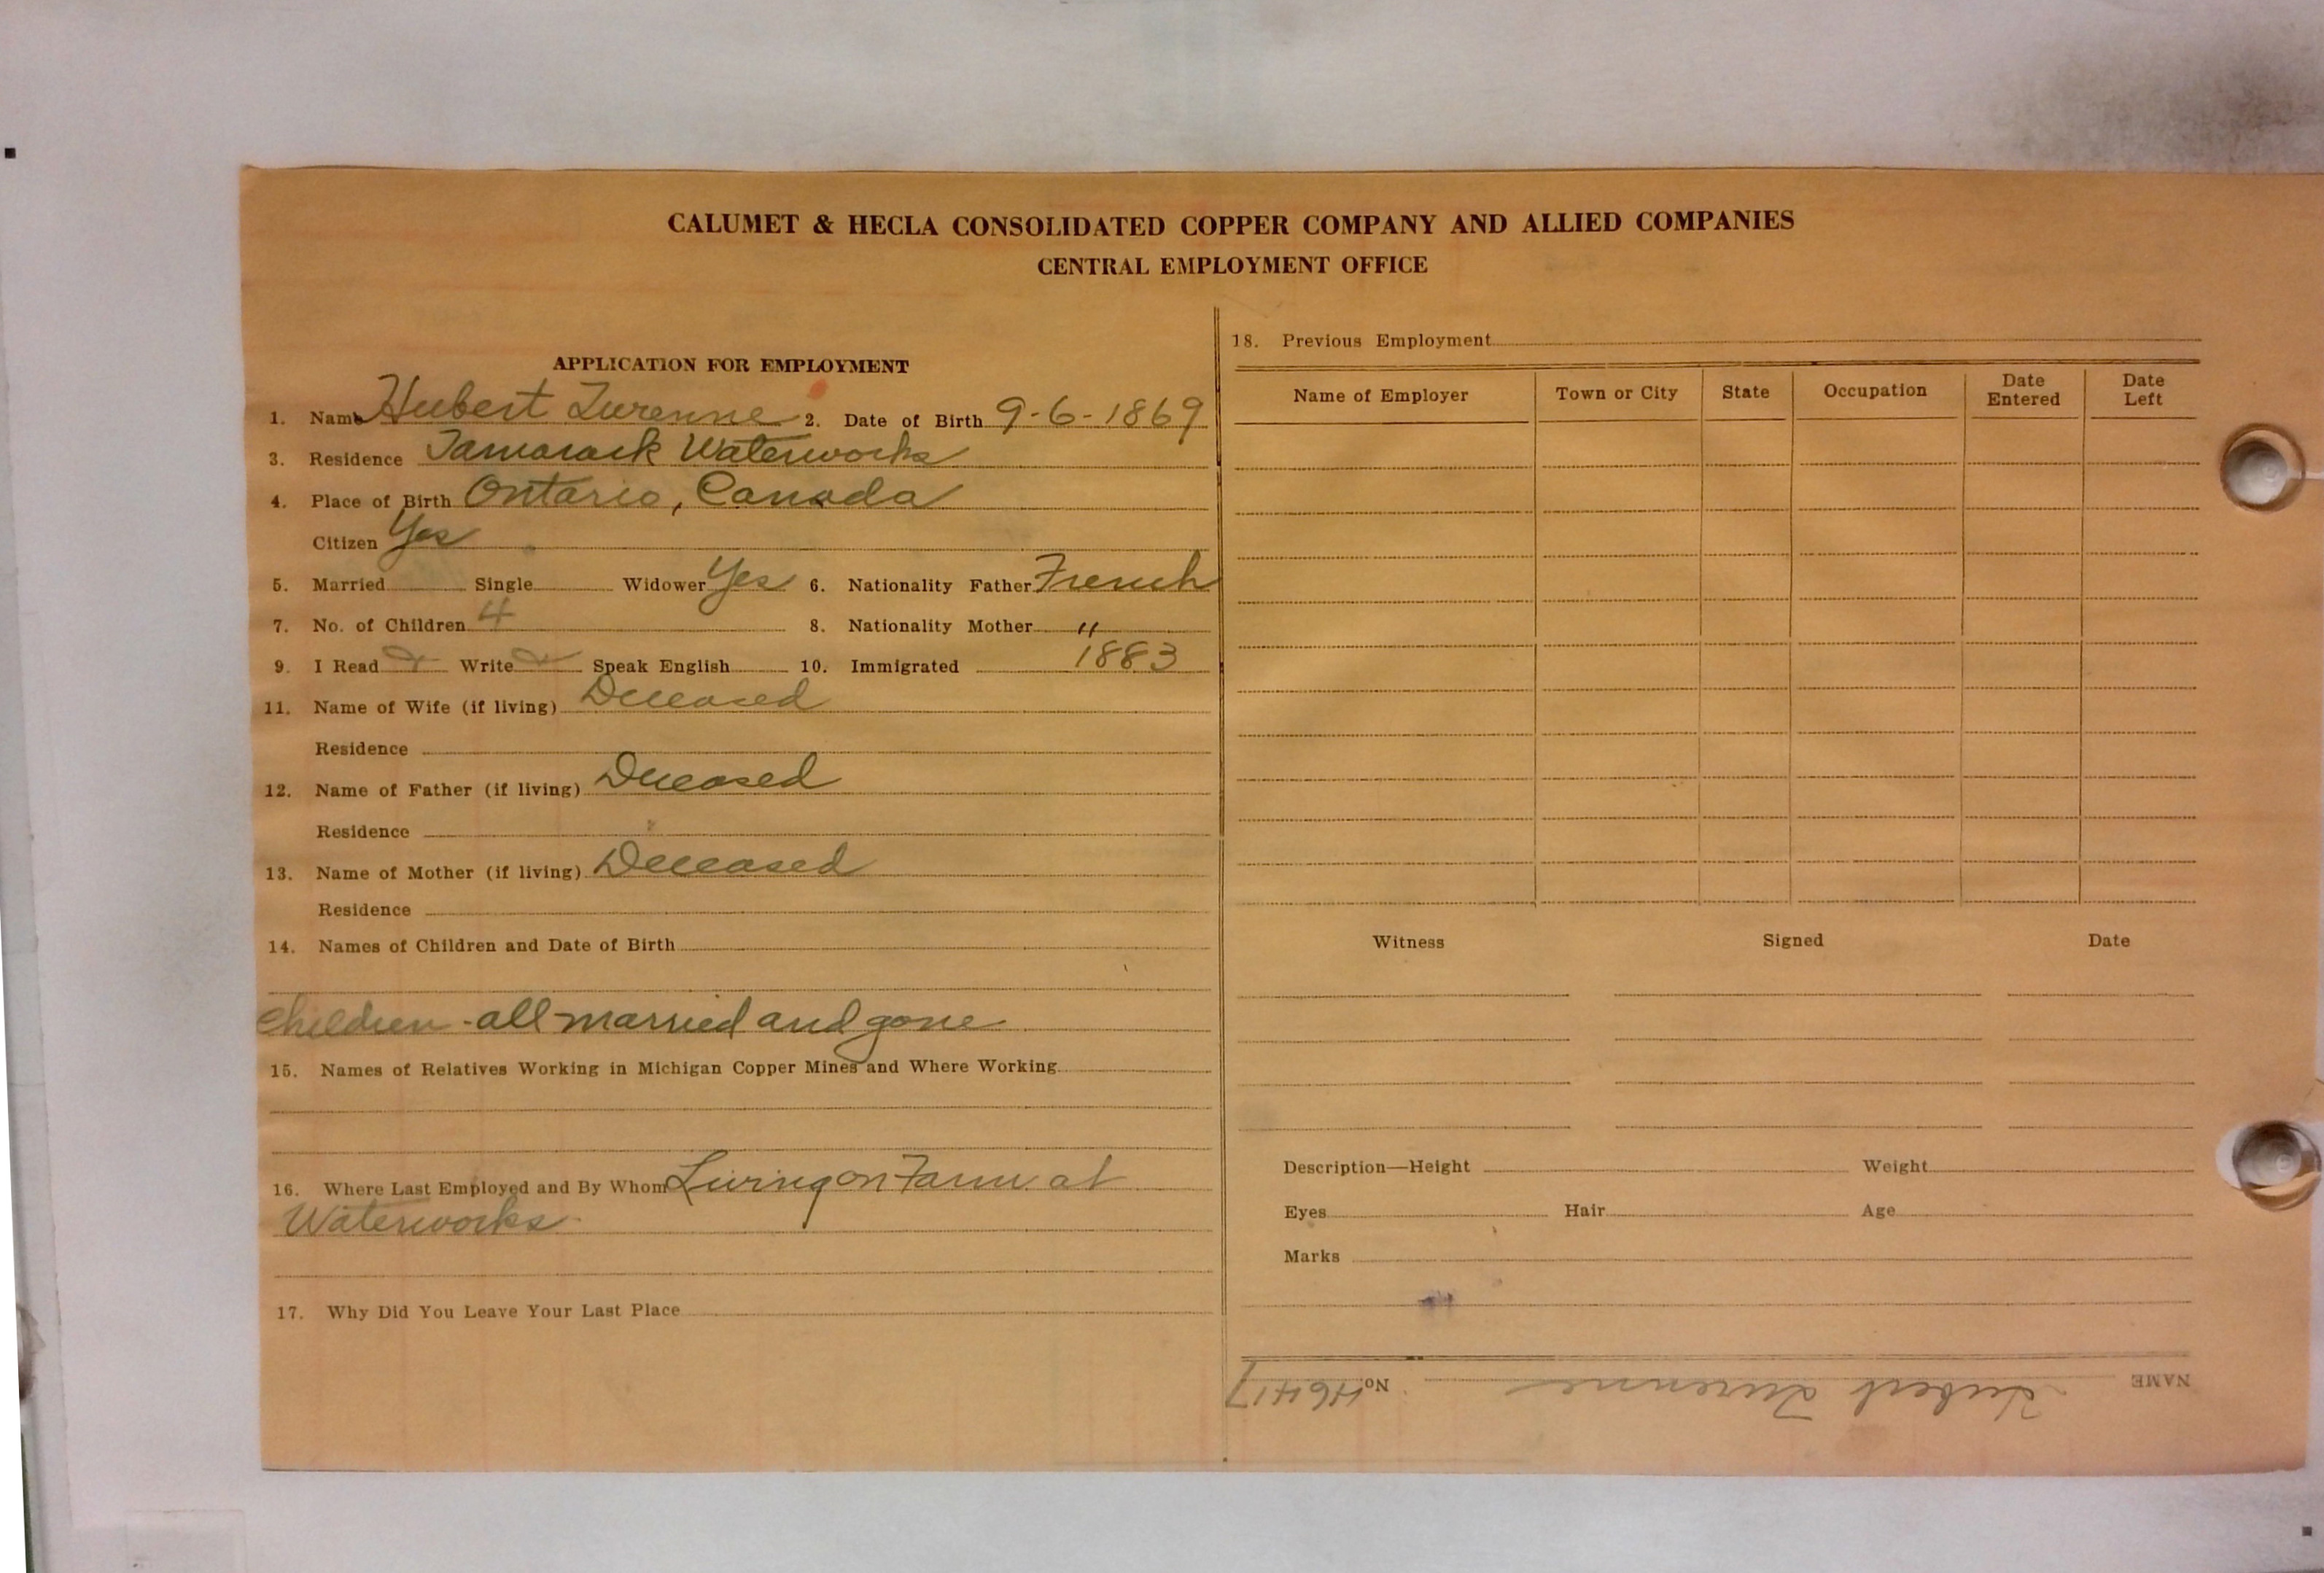 CALUMET & HECLA CONSOLIDATED COPPER COMPANY AND ALLIED COMPANIES
CENTRAL EMPLOYMENT OFFICE
APPLICATION FOR EMPLOYMENT
1. Name Hubert Turenne 2. Date of Birth 9-6-1869
3. Residence Tamarack Waterworks
4. Place of Birth Ontario, Canada
Citizen Yes
5. Married Single Widower Yes 6. Nationality Father French
7. No. of Children 4 8. Nationality Mother "
9. I Read Write Speak English 10. Immigrated 1883
11. Name of Wife (if living) Deceased
Residence
12. Name of Father (if living) Deceased
Residence
13. Name of Mother (if living) Deceased
Residence
14. Names of Children and Date of Birth
Children - all married and gone
15. Names of Relatives Working in Michigan Copper Mines and Where Working
16. Where Last Employed and By Whom Living on Farm at
Waterworks.
17. Why Did You Leave Your Last Place
18. Previous Employment
Name of Employer Town or City State Occupation Date Entered Date Left
Witness Signed Date
Description—Height Weight
Eyes Hair Age
Marks
NAME Hubert Turenne No. 46417